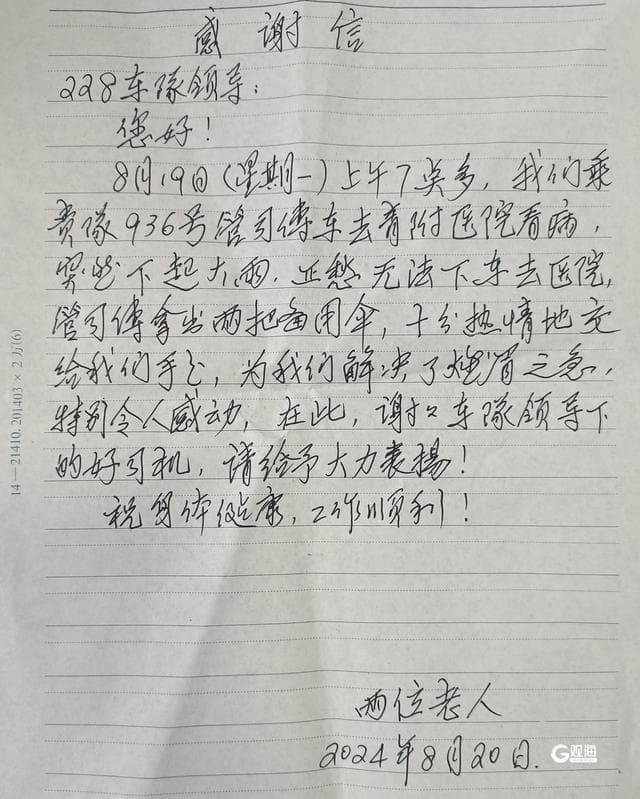 感谢信
228车隊领导：
您好！
8月19日（星期一）上午7点多，我们乘
贵隊936号管司傅车去青附医院看病，
突然下起大雨．正愁无法下车去医院，
管司傅拿出两把备用伞，十分热情地交
给我们手上，为我们解决了燃眉之急，
特别令人感动，在此，谢谢车隊领导下
的好司机，请给予大力表揚！
祝身体健康，工作顺利！
两位老人
2024年8月20日．
14—21410.201403×2万(6)
G观海